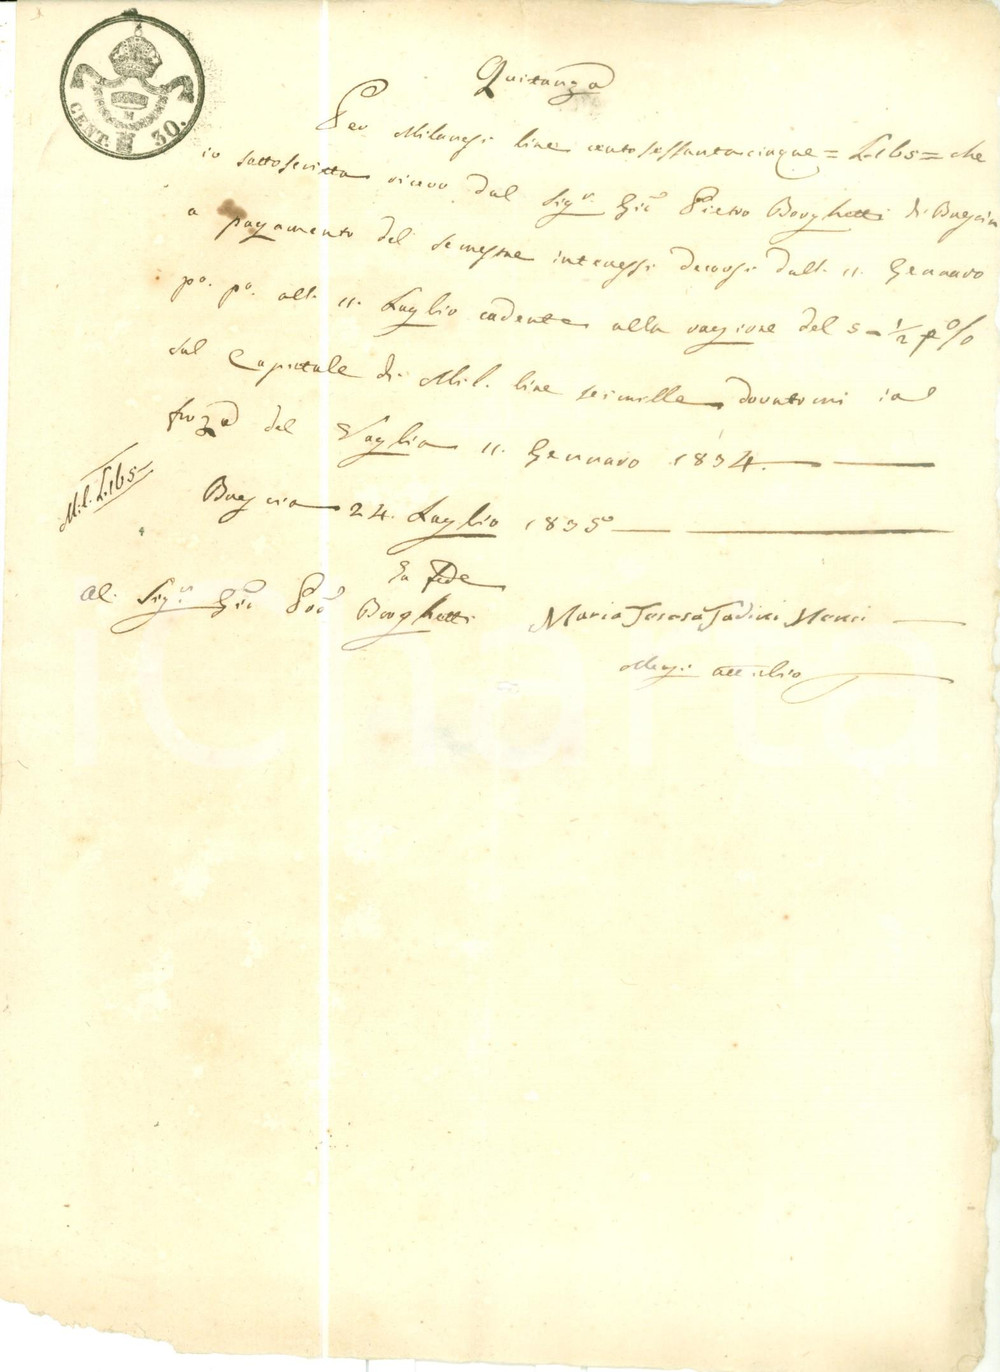 CENT. 30.
Quitanza
Per Milanesi lire cento sessanta cinque = L 165 = che
io sottoscritta ricevo dal Sigr. Gio Pietro Borghetti di Brescia
a pagamento del semestre interessi decorsi dall. 11. Gennaro
po. po. all. 11. Luglio cadente alla ragione del 5 - 1/2 p %
sul Capitale di Mil. lire seimille dovutomi in
forza del Vaglia 11. Gennaro 1834.
Mil. L 165
Brescia 24. Luglio 1835
In fede
Al. Sigr. Gio Borghetti
Maria Teresa Tadini
Attilio